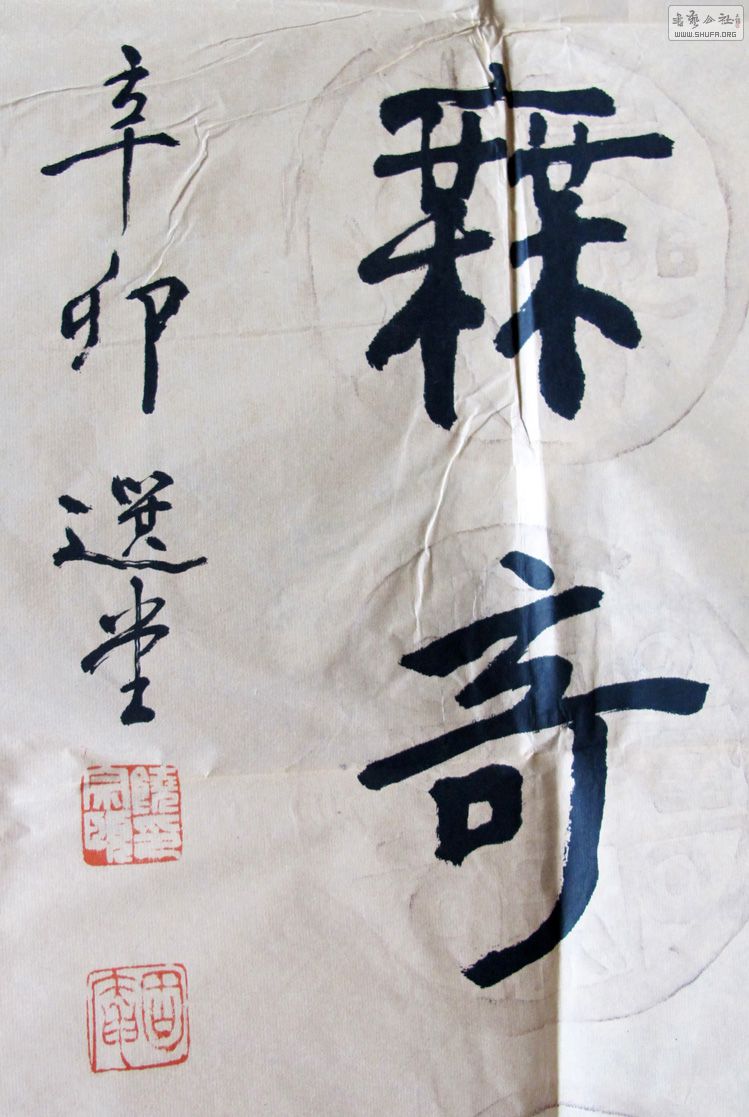 無奇
辛卯 選堂
書藝公社
WWW.SHUFA.ORG